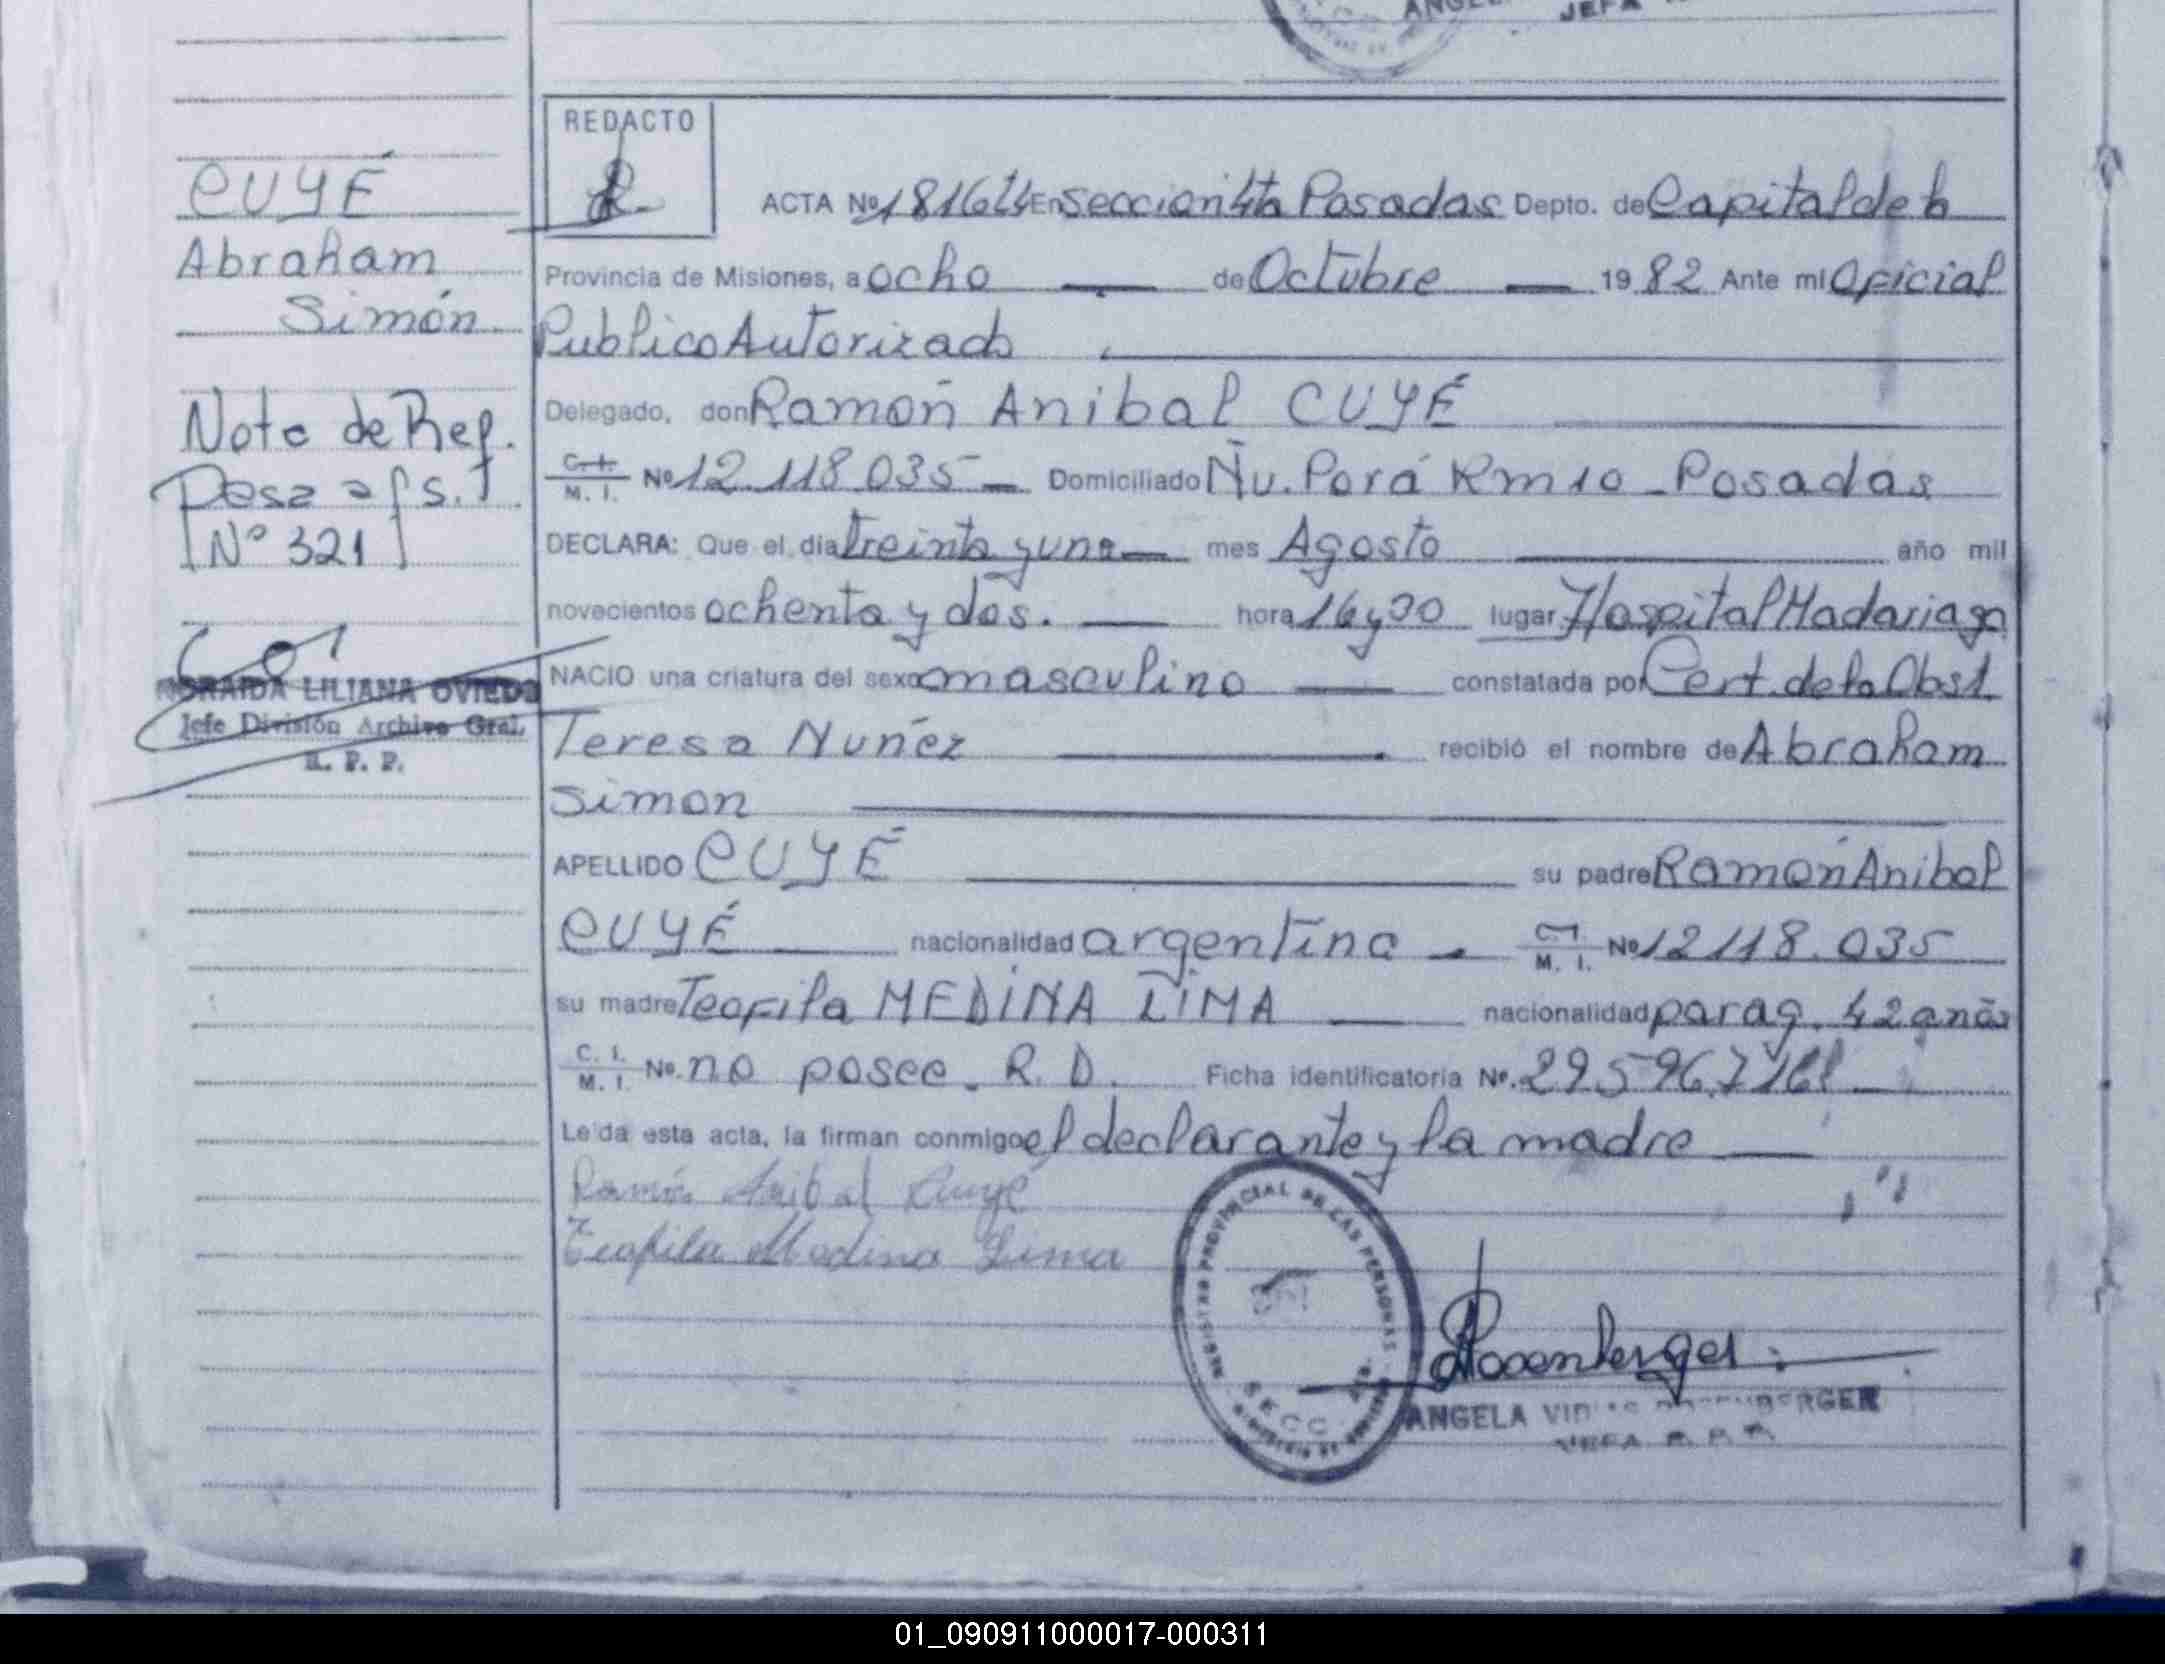 JEFA
CUYÉ
Abraham
Simón
Nota de Ref.
Pasa a fs. 1
Nº 321
LILIANA OVIEDO
Jefe División Archivo Gral.
R. P. P.
REDACTO
ACTA Nº En Sección 4ta Posadas Depto. de Capital de la
Provincia de Misiones, a ocho de Octubre 1982 Ante mí Oficial
Publico Autorizado
Delegado, don Ramón Anibal CUYÉ
C. I. M. I. Nº 12.118.035 Domiciliado Ñu. Porá Km 10 - Posadas
DECLARA: Que el día treinta y uno mes Agosto año mil
novecientos ochenta y dos. hora 16 y 00 lugar Hospital Madariaga
NACIO una criatura del sexo masculino constatada por Cert. de la Obst.
Teresa Nuñez recibió el nombre de Abraham
Simon
APELLIDO CUYÉ su padre Ramón Anibal
CUYÉ nacionalidad argentina C. I. M. I. Nº 12118.035
su madre Teofila MEDINA LIMA nacionalidad parag. 42 años
C. I. M. I. Nº. no posee. R. D. Ficha identificatoria Nº.
Leída esta acta, la firman conmigo el declarante y la madre
Ramón Anibal Cuyé
Teofila Medina Lima
REGISTRO PROVINCIAL DE LAS PERSONAS
SECC. 4ta.
Rosenberger
ANGELA ROSENBERGER
JEFA R. P. P.
01_090911000017-000311